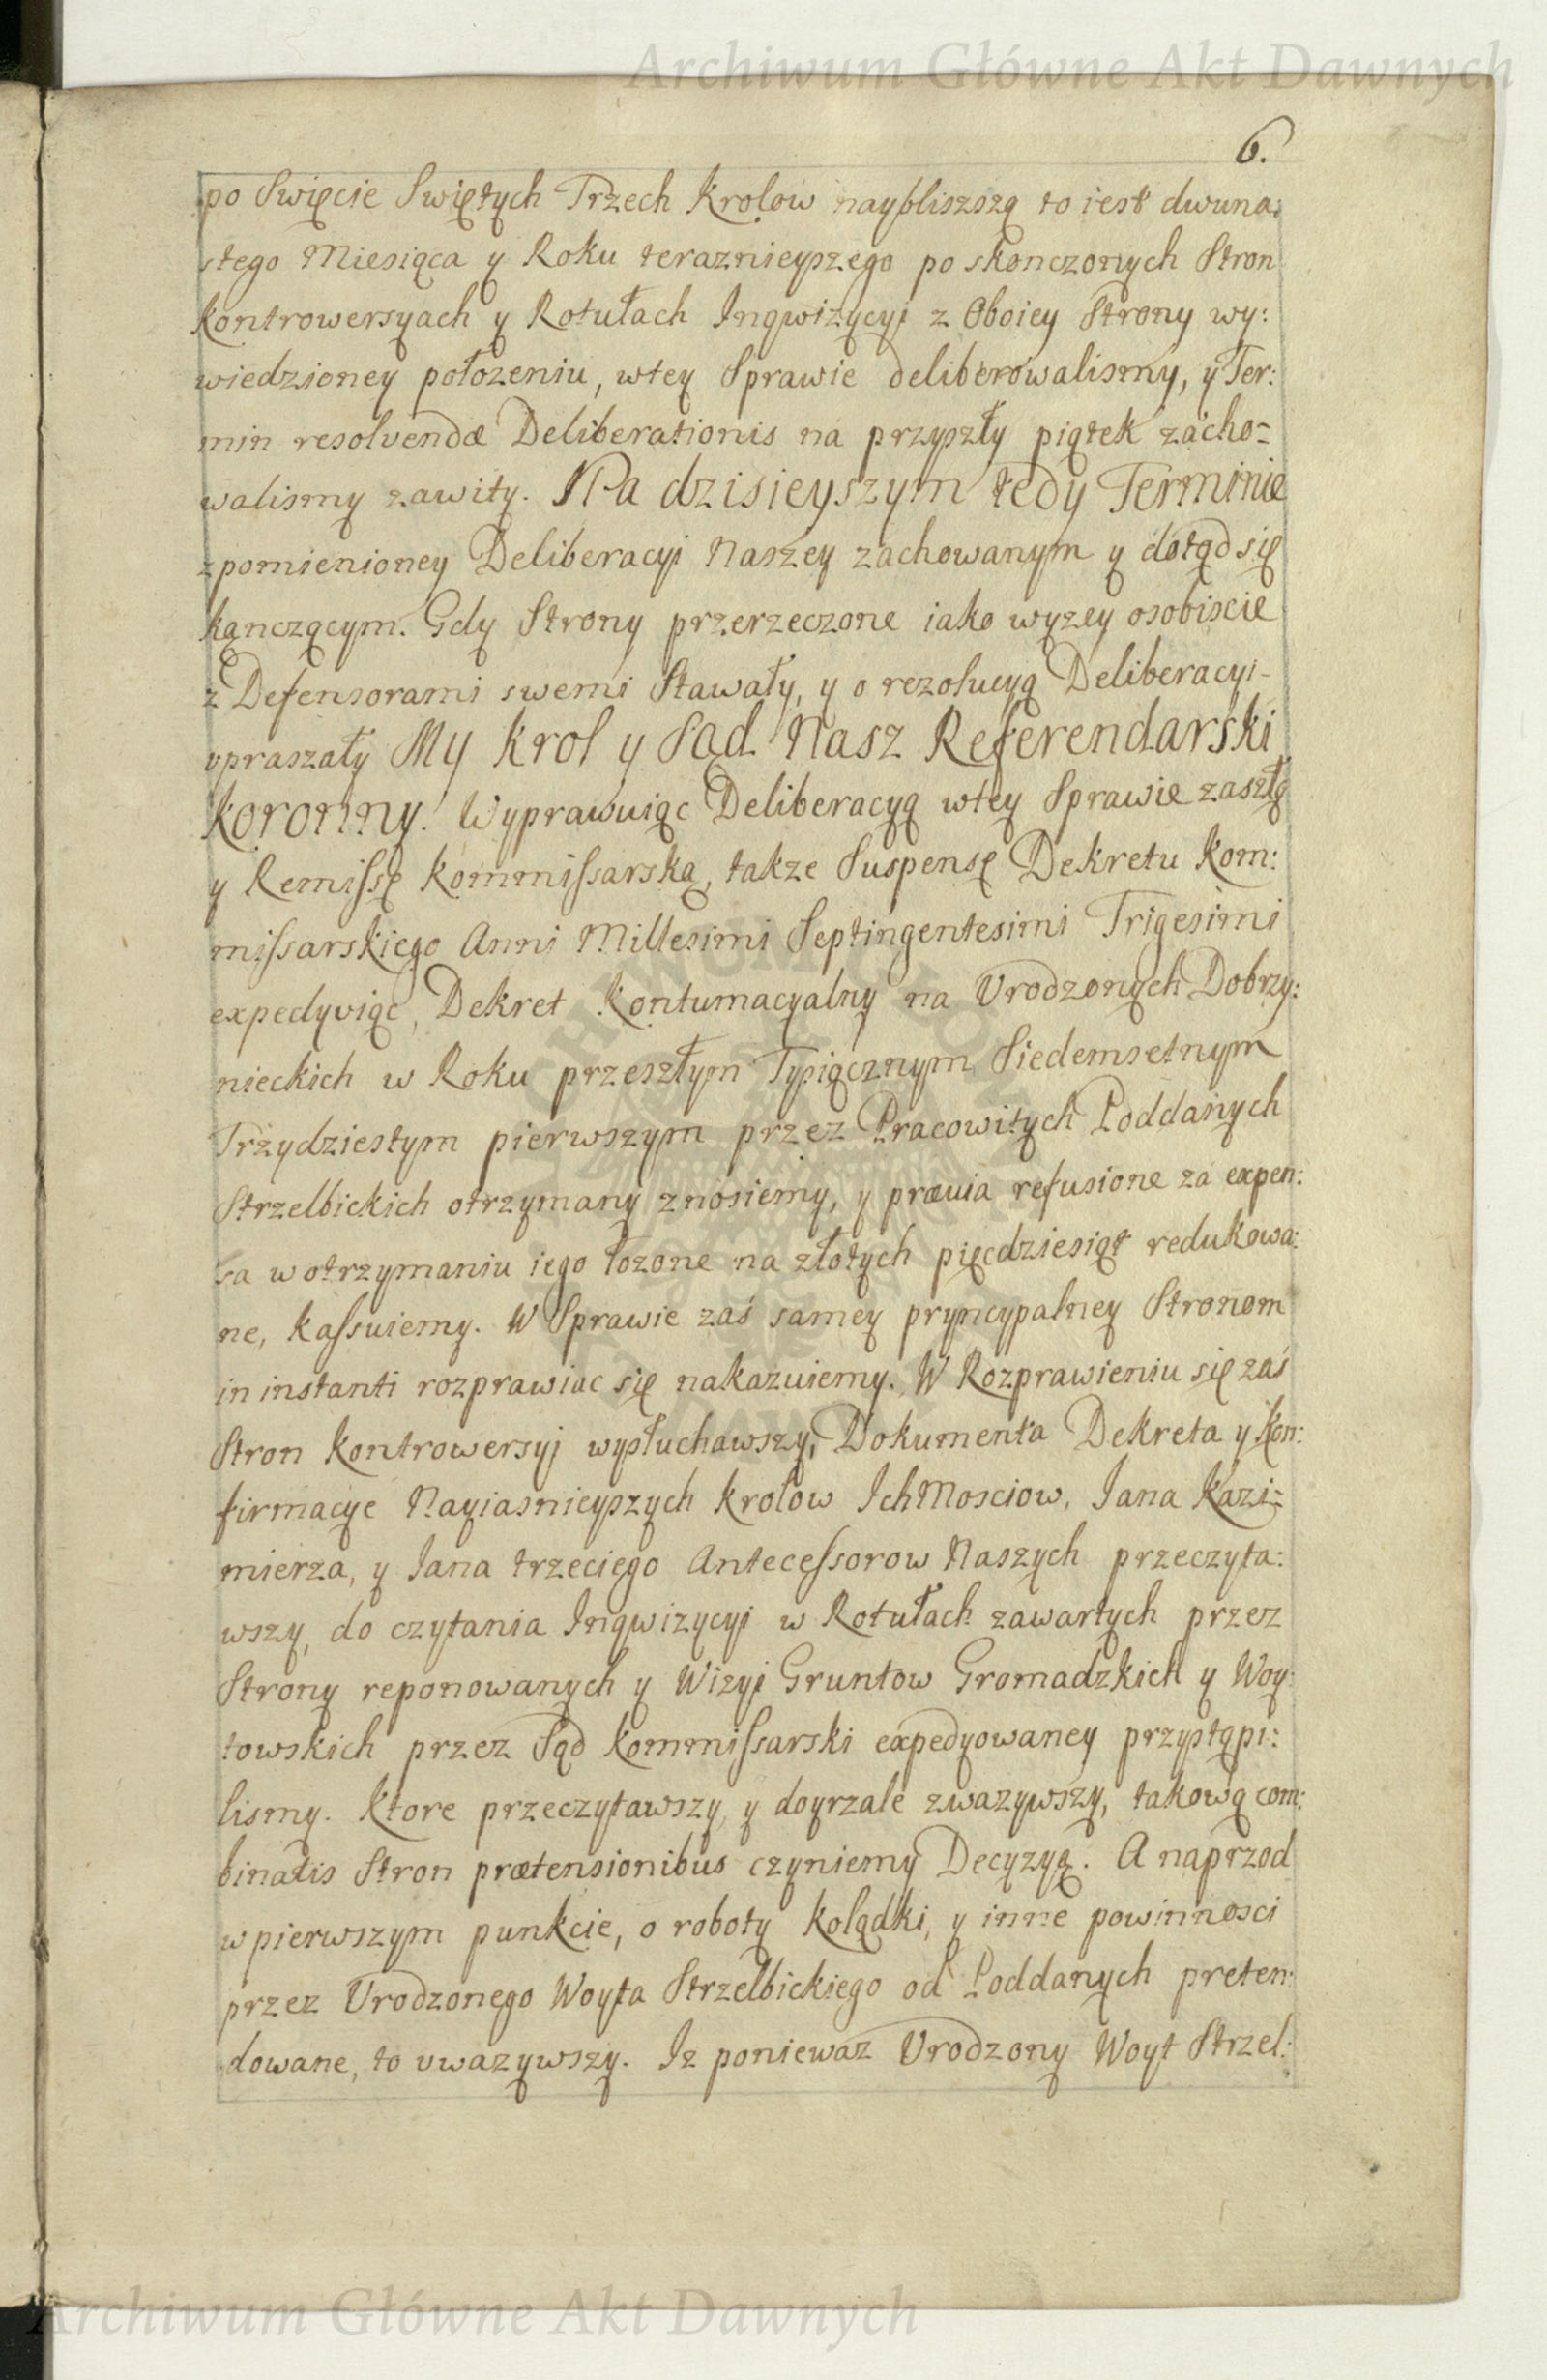 Archiwum Główne Akt Dawnych
6.
po Swięcie Swiętych Trzech Krolow naybliszszą to iest dwuna:
stego Miesiąca y Roku teraznieyszego po skonczonych Stron
kontrowersyach y Rotułach Inqwizycyi z Oboiey Strony wy:
wiedzioney położeniu, wtey Sprawie deliberowalismy, y Ter:
min resolvendæ Deliberationis na przyszły piątek zacho=
walismy zawity. Na dzisieyszym tedy Terminie
zpomienioney Deliberacyi Naszey zachowanym y dotąd się
kączącym. Gdy Strony przerzeczone iako wyzey osobiscie
z Defensorami swemi Stawały, y o rezolucyą Deliberacyi
upraszały My Krol y Sąd Nasz Referendarski
Koronny. Wyprawuiąc Deliberacyą wtey Sprawie zaszłą
y Remissę Kommissarską, takze Suspensę Dekretu Kom:
missarskiego Anni Millesimi Septingentesimi Trigesimi
expedyuiąc, Dekret Kontumacyalny na Urodzonych Dobrzy:
nieckich w Roku przeszłym Tysiącznym Siedemsetnym
Trzydziestym pierwszym przez Pracowitych Poddanych
Strzelbickich otrzymany znosiemy, y prævia refusione za expen:
sa w otrzymaniu iego łozone na złotych pięcdziesiąt redukowa:
ne, kassuiemy. W Sprawie zaś samey pryncypalney Stronom
in instanti rozprawiac się nakazuiemy. W Rozprawieniu się zaś
Stron kontrowersyj wysłuchawszy, Dokumenta Dekreta y Kon:
firmacye Nayiasnieyszych Krolow Ich Mosciow, Jana Kazi=
mierza, y Jana trzeciego Antecessorow Naszych przeczyta:
wszy, do czytania Inqwizycyi w Rotułach zawartych przez
Strony reponowanych y Wizyi Gruntow Gromadzkich y Woy:
towskich przez Sąd Kommissarski expedyowaney przystąpi:
lismy. Ktore przeczytawszy, y doyrzale zwazywszy, takową com:
binatis Stron prætensionibus czyniemy Decyzyą. A naprzod
w pierwszym punkcie, o roboty kolądki, y inne powinnosci
przez Urodzonego Woyta Strzelbickiego od Poddanych preten:
dowane, to uwazywszy. Iz poniewaz Urodzony Woyt Strzel:
Archiwum Główne Akt Dawnych